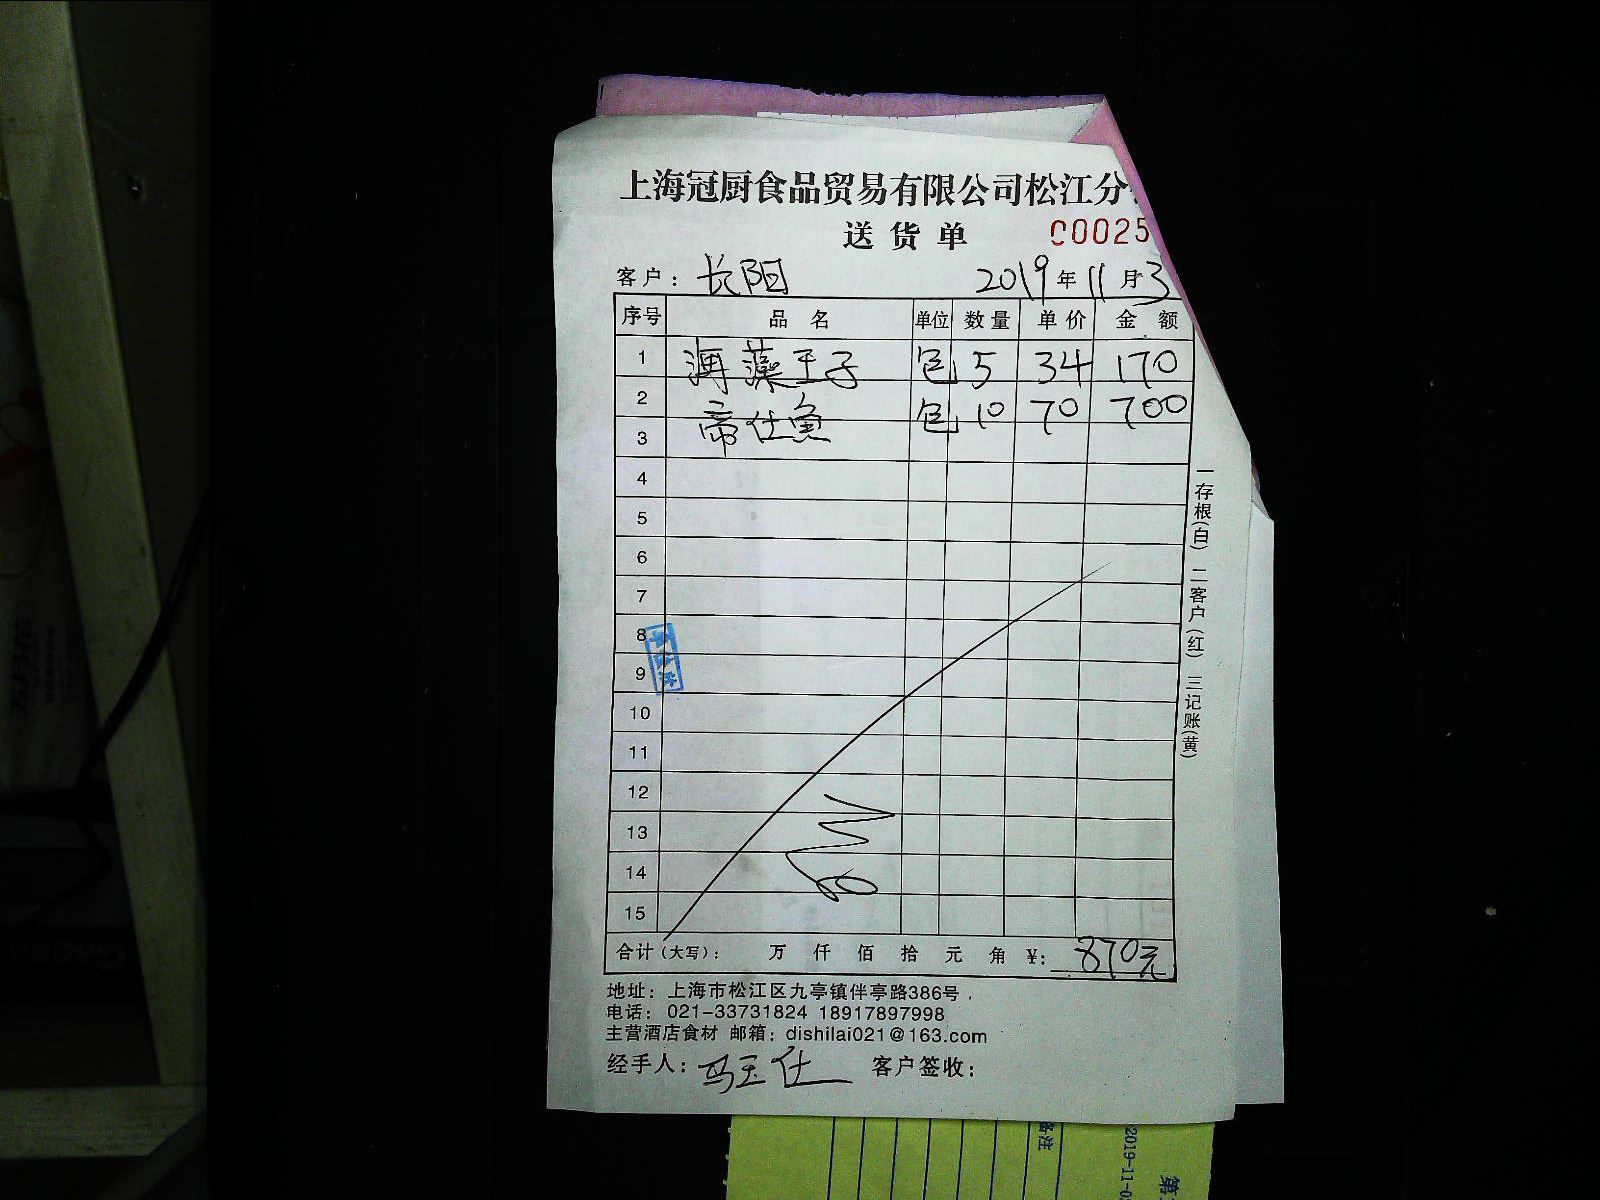 上海冠厨食品贸易有限公司松江分
送货单 00025
客户： 长阳 2019年11月3
序号 品名 单位 数量 单价 金额
1 海藻王子 包 5 34 170
2 帝仕鱼 包 10 70 700
3
4
5
6
7
8
9
10
11
12
13
14
15
合计（大写）： 万 仟 佰 拾 元 角 ¥: 870元
一存根(白) 二客户(红) 三记账(黄)
地址：上海市松江区九亭镇伴亭路386号
电话：021-33731824 18917897998
主营酒店食材 邮箱：dishilai021@163.com
经手人：马玉仕 客户签收：
备注
2019-11-0
第